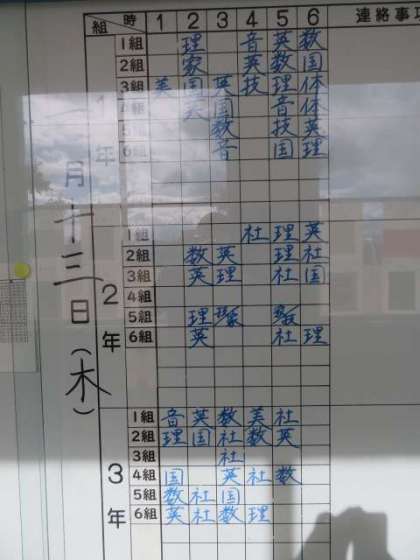 時 1 2 3 4 5 6 連絡事項
組
1年
1組 理 音 英 数
2組 家 英 数 国
3組 美 国 英 技 理 体
4組 国 音 体
5組 数 技 英
6組 音 国 理
2年
1組 社 理 英
2組 数 英 理 社
3組 英 理 社 国
4組
5組 理
6組 英 社 理
3年
1組 音 英 数 美 社
2組 理 国 社 数 英
3組 社
4組 国 英 社 数
5組 数 社 国
6組 英 社 数 理
月十三日(木)